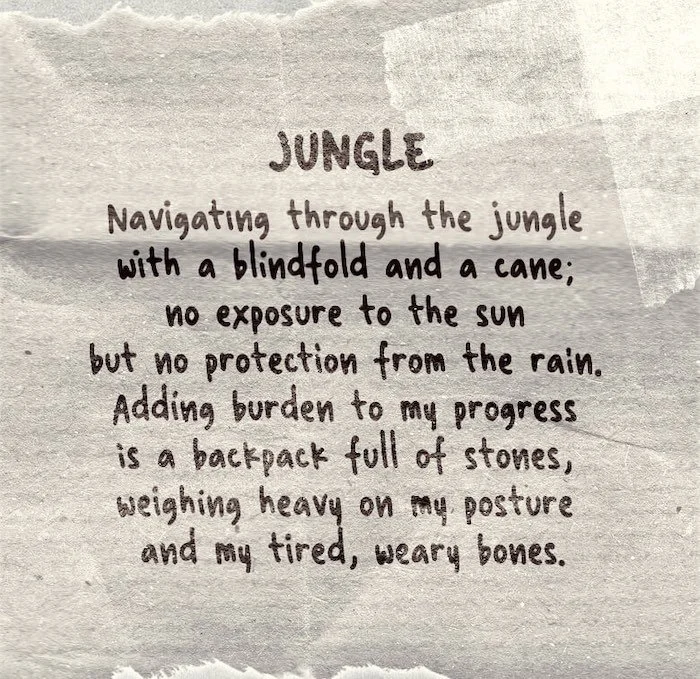 JUNGLE
Navigating through the jungle
with a blindfold and a cane;
no exposure to the sun
but no protection from the rain.
Adding burden to my progress
is a backpack full of stones,
weighing heavy on my posture
and my tired, weary bones.